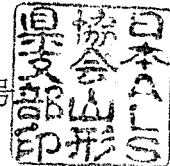 日本ALS
協会山形
県支部印
号